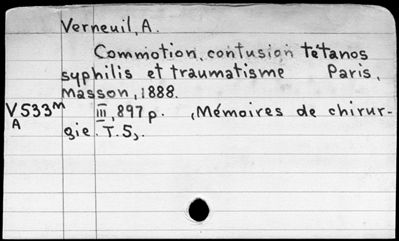 Verneuil, A.
Commotion, contusion tétanos
syphilis et traumatisme Paris,
Masson, 1888.
V533m III, 897 p. (Mémoires de chirur-
A gie. T. 5).